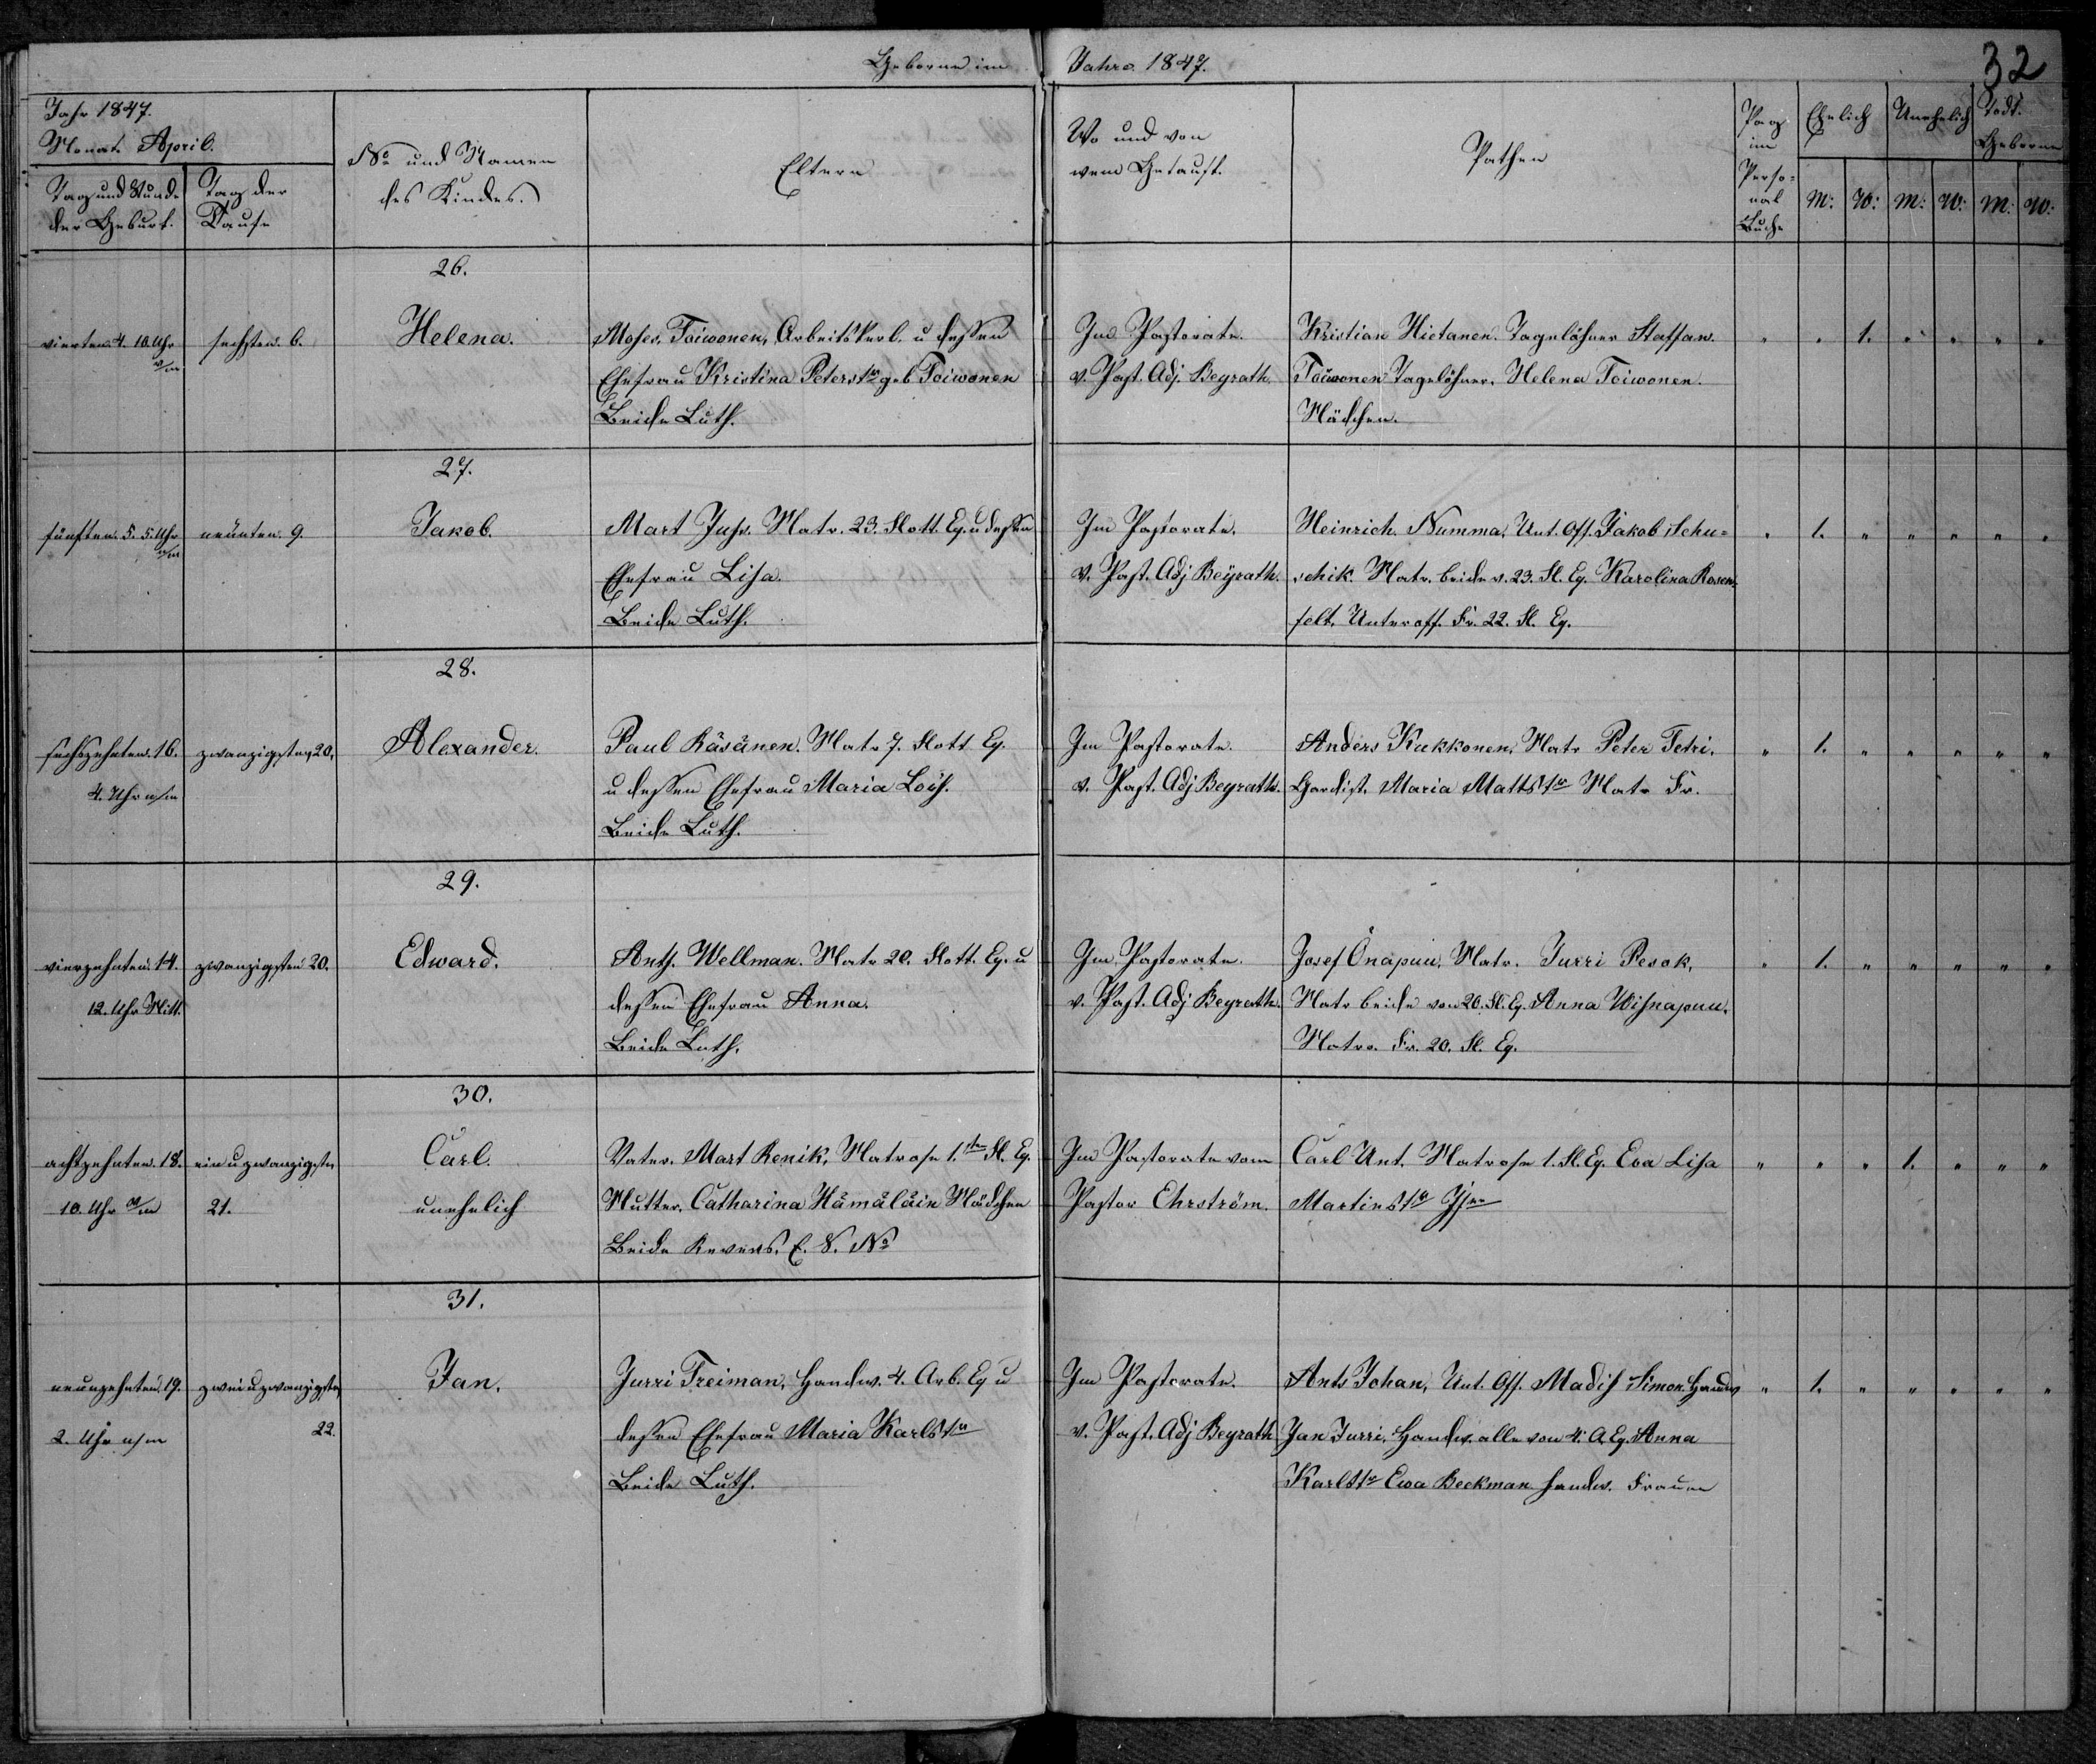 Geborne im Jahre 1847.
32
Jahr 1847.
Monat. April.
Tag und Stunde der Geburt.
Tag der Taufe
No und Namen des Kindes.
Eltern
Wo und von wem Getauft.
Pathen
Pag im Personal Buche
Ehelich
Unehelich
Todt. Geborne
M: W: M: W: M: W:
26.
vierten. 4. 10. Uhr v/m
sechsten 6.
Helena.
Moses. Toiwonen, Arbeitskerl. u dessen
Ehefrau Kristina Peterstr geb Toiwonen
Beide Luth.
Im Pastorate.
v. Past. Adj. Beyrath.
Kristian Hietanen. Tagelöhner Staffan.
Toiwonen Tagelöhner, Helena Toiwonen.
Mädchen.
" " 1. " " " "
27.
fünften. 5. 5. Uhr n/m
neünten. 9.
Jakob.
Mart Juhs. Matr. 23. Flott. Eq. u dessen
Ehefrau Lisa.
Beide Luth.
Im Pastorate.
v. Past. Adj Beyrath.
Heinrich. Numma, Unt. Off. Jakob Schu=
schik. Matr. beide v. 23. Fl. Eq. Karolina Rosen=
felt. Unteroff. Fr. 22. Fl. Eq.
" 1. " " " " "
28.
sechszehnten. 16.
4. Uhr n/m
zwanzigsten 20.
Alexander.
Paul Räsänen. Matr 7. Flott Eq.
u dessen Ehefrau Maria Lois.
Beide Luth.
Im Pastorate.
v. Past. Adj Beyrath.
Anders Kukkonen, Matr Peter Tetri.
Gardist. Maria Mattstr Matr Fr.
" 1. " " " " "
29.
vierzehnten. 14.
12. Uhr Mitt.
zwanzigsten 20.
Edward.
Ants. Wellman. Matr 20. Flott. Eq. u
dessen Ehefrau Anna.
Beide Luth.
Im Pastorate.
v. Past. Adj Beyrath.
Josef Önapuu, Matr. Jurri Pesok,
Matr beide von 20. Fl. Eq. Anna Wisnapuu.
Matro. Fr. 20. Fl. Eq.
" 1. " " " " "
30.
achtzehnten. 18.
10. Uhr v/m
ein u zwanzigsten
21.
Carl.
unehelich
Vater. Mart Renik, Matrose 1.ten Fl. Eq.
Mutter, Catharina Hämäläin Mädchen
Beide Revers. E. V. No
Im Pastorate vom
Pastor Ehrström.
Carl Unt. Matrose 1. Fl. Eq. Eva Lisa
Martinstr
" " " 1. " " "
31.
neunzehnten. 19.
2. Uhr n/m
zwei u zwanzigsten
22.
Jan.
Jurri Treiman, Handw. 4. Arb. Eq u
dessen Ehefrau Maria Karlstr
Beide Luth.
Im Pastorate.
v. Past. Adj Beyrath
Ants Johan, Unt. Off. Madis Simon. Handw
Jan Jurri, Handw. alle von 4. A. Eq. Anna
Karlstr Ewa Beckman handw. Frauen
" 1. " " " " "